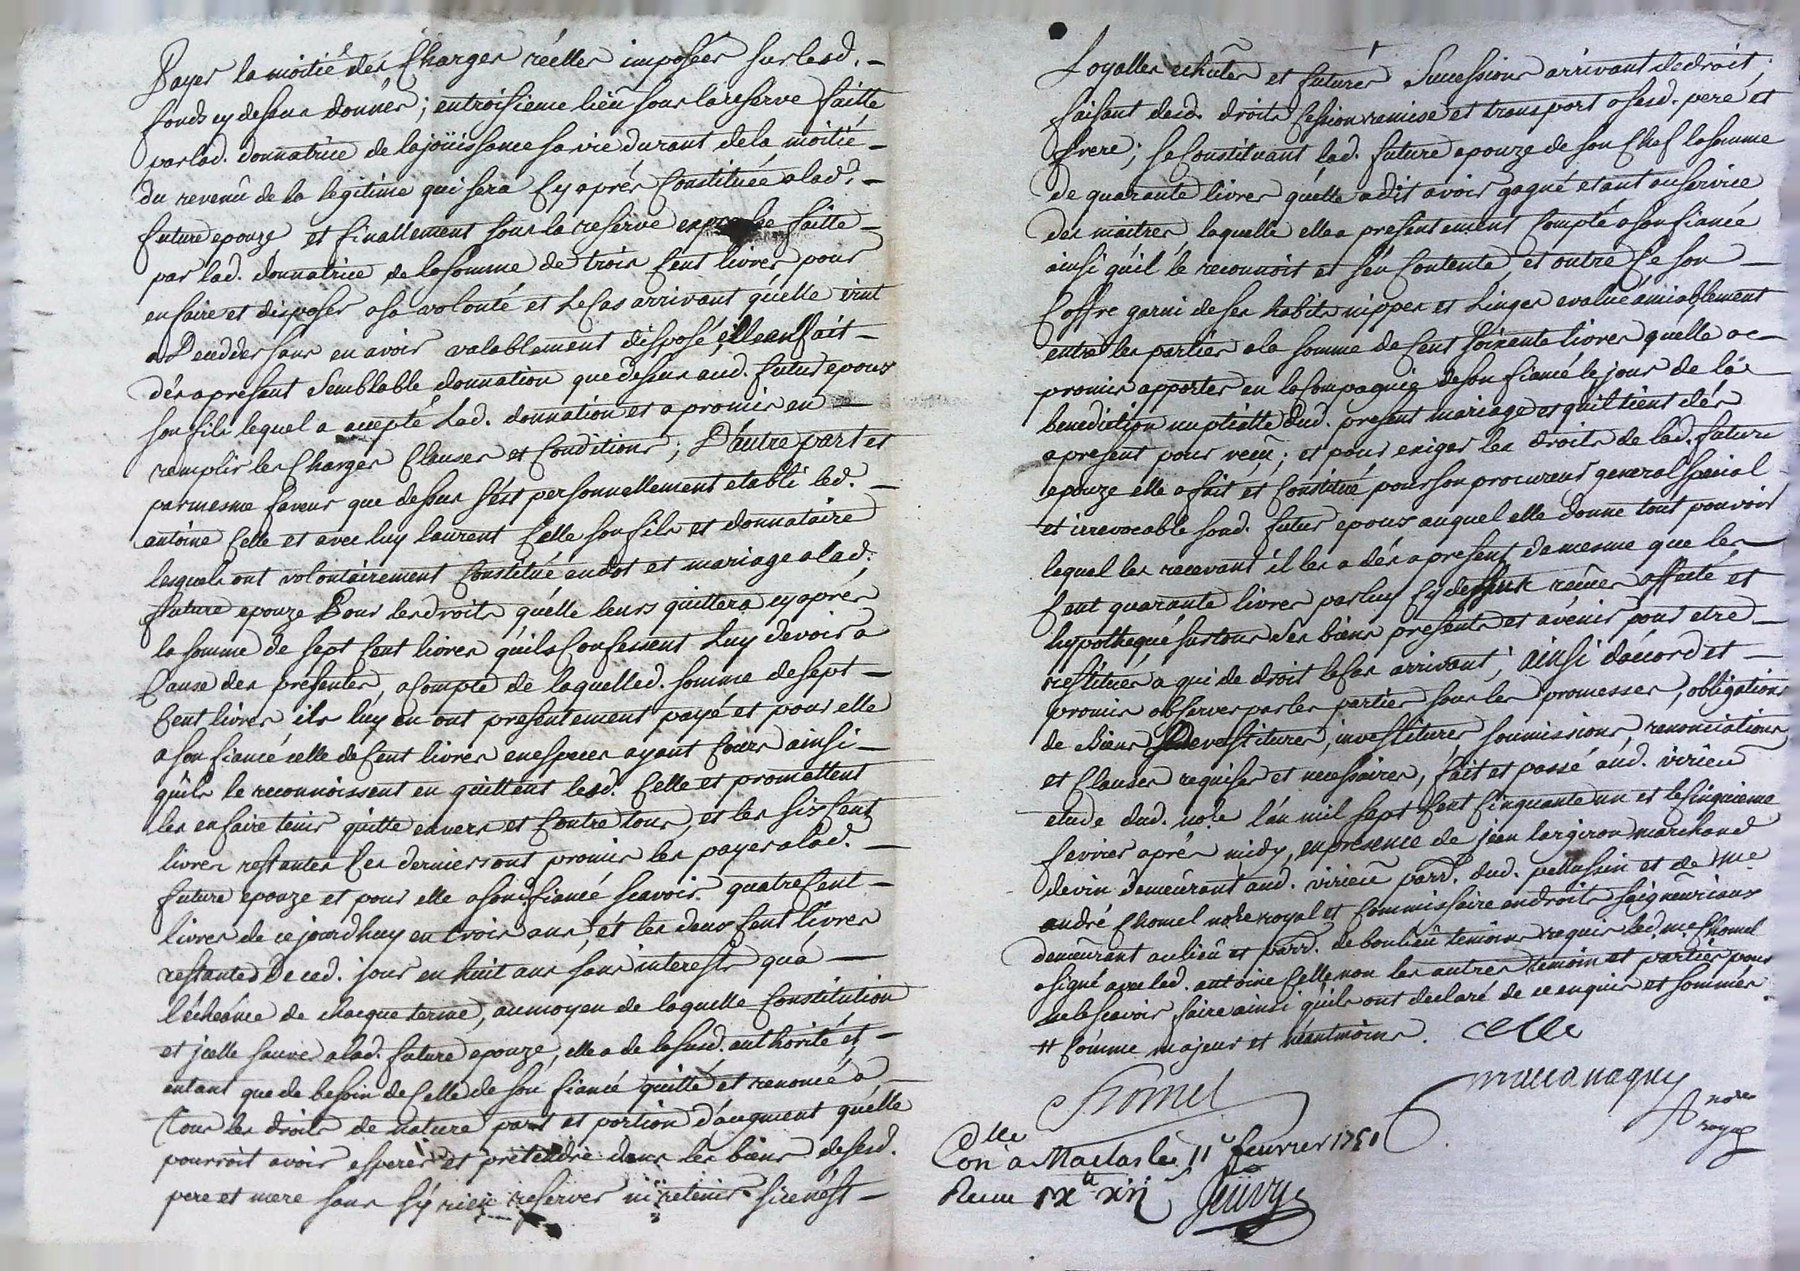 Payer la moitié des Charges réelles imposées sur lesd.
fonds cy dessus donnés; en troisieme lieu sous la reserve faitte
par lad. donnatrice de la joüissance sa vie durant de la moitié
du revenû de la légitime qui sera Cy aprés Constituée a lad.
future epouze et finallement sous la reserve expresse faitte
par lad. donnatrice de la somme de trois Cent livres pour
en faire et disposer a sa volonté et Le Cas arrivant qu'elle vint
a Decedder sans en avoir valablement disposé, elle en fait
dés a present semblable donnation que dessus aud. futur epoux
son fils lequel a accepté Lad. donnation et a promis en
remplir les Charges Clauses et Conditions; D'autre part et
par mesme faveur que dessus s'ést personnellement etabli led.
antoine Celle et avec luy laurent Celle son fils et donnataire
lesquels ont volontairement Constitué en dot et mariage a lad.
future epouze Pour les droits qu'elle leurs quittera cy aprés
la somme de sept Cent livres qu'ils Confessent Luy devoir a
Cause des presentes, a compte de laquelle d. somme de sept
Cent livres ils luy en ont presentement payé et pour elle
a son fiancé celle de Cent livres en especes ayant Cours ainsi
qu'ils le reconnoissent en quittent lesd. Celle et promettent
les en faire tenir quitte envers et Contre tous, et les six Cent
livres restantes Ces derniers ont promis les payer a lad.
future epouze et pour elle a son d. fiancé scavoir quatre Cent
livres de ce jourdhuy en trois ans, ét les deux Cent livres
restantes De ced. jour en huit ans sans interests qu'a
l'échéance de chaque terme, au moyen de laquelle Constitution
et jcelle sauve a lad. future epouze, elle a de la susd. authorité et
entant que de besoin de Celle de son fiancé quitté et renoncé a
Tous les droits de nature part et portion d'augment qu'elle
pourroit avoir esperer et prétendre dans les biens de sesd.
pere et mere sans s'y rien reserver ni retenir si ce n'ést
Loyalles echutes et futures Successions arrivant de droit;
faisant desd. droits Cession remise et transport a sesd. pere et
frere; se Constituant lad. future epouze de son Chef la somme
de quarante livres qu'elle a dit avoir gagné etant au service
des maitres laquelle elle a presentement Compté a son fiancé
ainsi qu'il le reconnoit et s'en Contente, et outre Ce son
Coffre garni de ses habits nippes et Linges evalué amiablement
entre les parties a la somme de Cent soixante livres qu'elle a
promis apporter en la Compagnie de son fiancé le jour de la
benediction nuptialle dud. present mariage et qu'il tient dés
a present pour reçu; et pour exiger les droits de lad. future
epouze elle a fait et Constitué pour son procureur general special
et irrevocable sond. futur epoux auquel elle donne tout pouvoir
lequel les recevant il les a dés a present de mesme que les
Cent quarante livres par luy Cy dessus recües affecté et
hypothequé sur tous ses biens presents et avenir pour etre
restitués a qui de droit le Cas arrivant; ainsi d'accord et
promis observer par les parties sous les promesses, obligations
de Biens Devestitures, investitures, soumissions, renonciations
et Clauses requises et necessaires, fait et passé aud. virieu
etude dud. nore l'an mil sept Cent Cinquante un et le Cinquieme
fevrier aprés midy, en presence de jean largiron marchand
de vin demeurant aud. virieu parr. dud. pellussin et de Me.
andré Chomel nore royal et Commissaire en droits seigneuriaux
demeurant au lieu et parr. de boulieu temoins requis led. me. Chomel
a signé avec led. antoine Celle non les autres temoin et parties pour
ne le scavoir faire ainsi qu'ils ont declaré de ce enquis et sommés
# Comme majeur et neantmoins. Celle
Chomel
nore
royal
Collé
Con a Maclas le 11 fevrier 1751
Receu